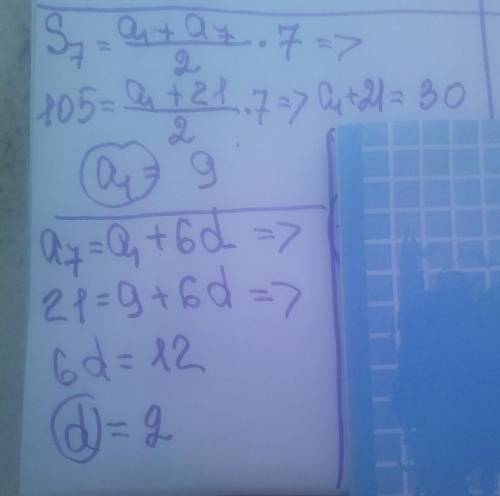 S₇ = (a₁ + a₇)/2 · 7 =>
105 = (a₁ + 21)/2 · 7 => a₁ + 21 = 30
a₁ = 9
a₇ = a₁ + 6d =>
21 = 9 + 6d =>
6d = 12
d = 2